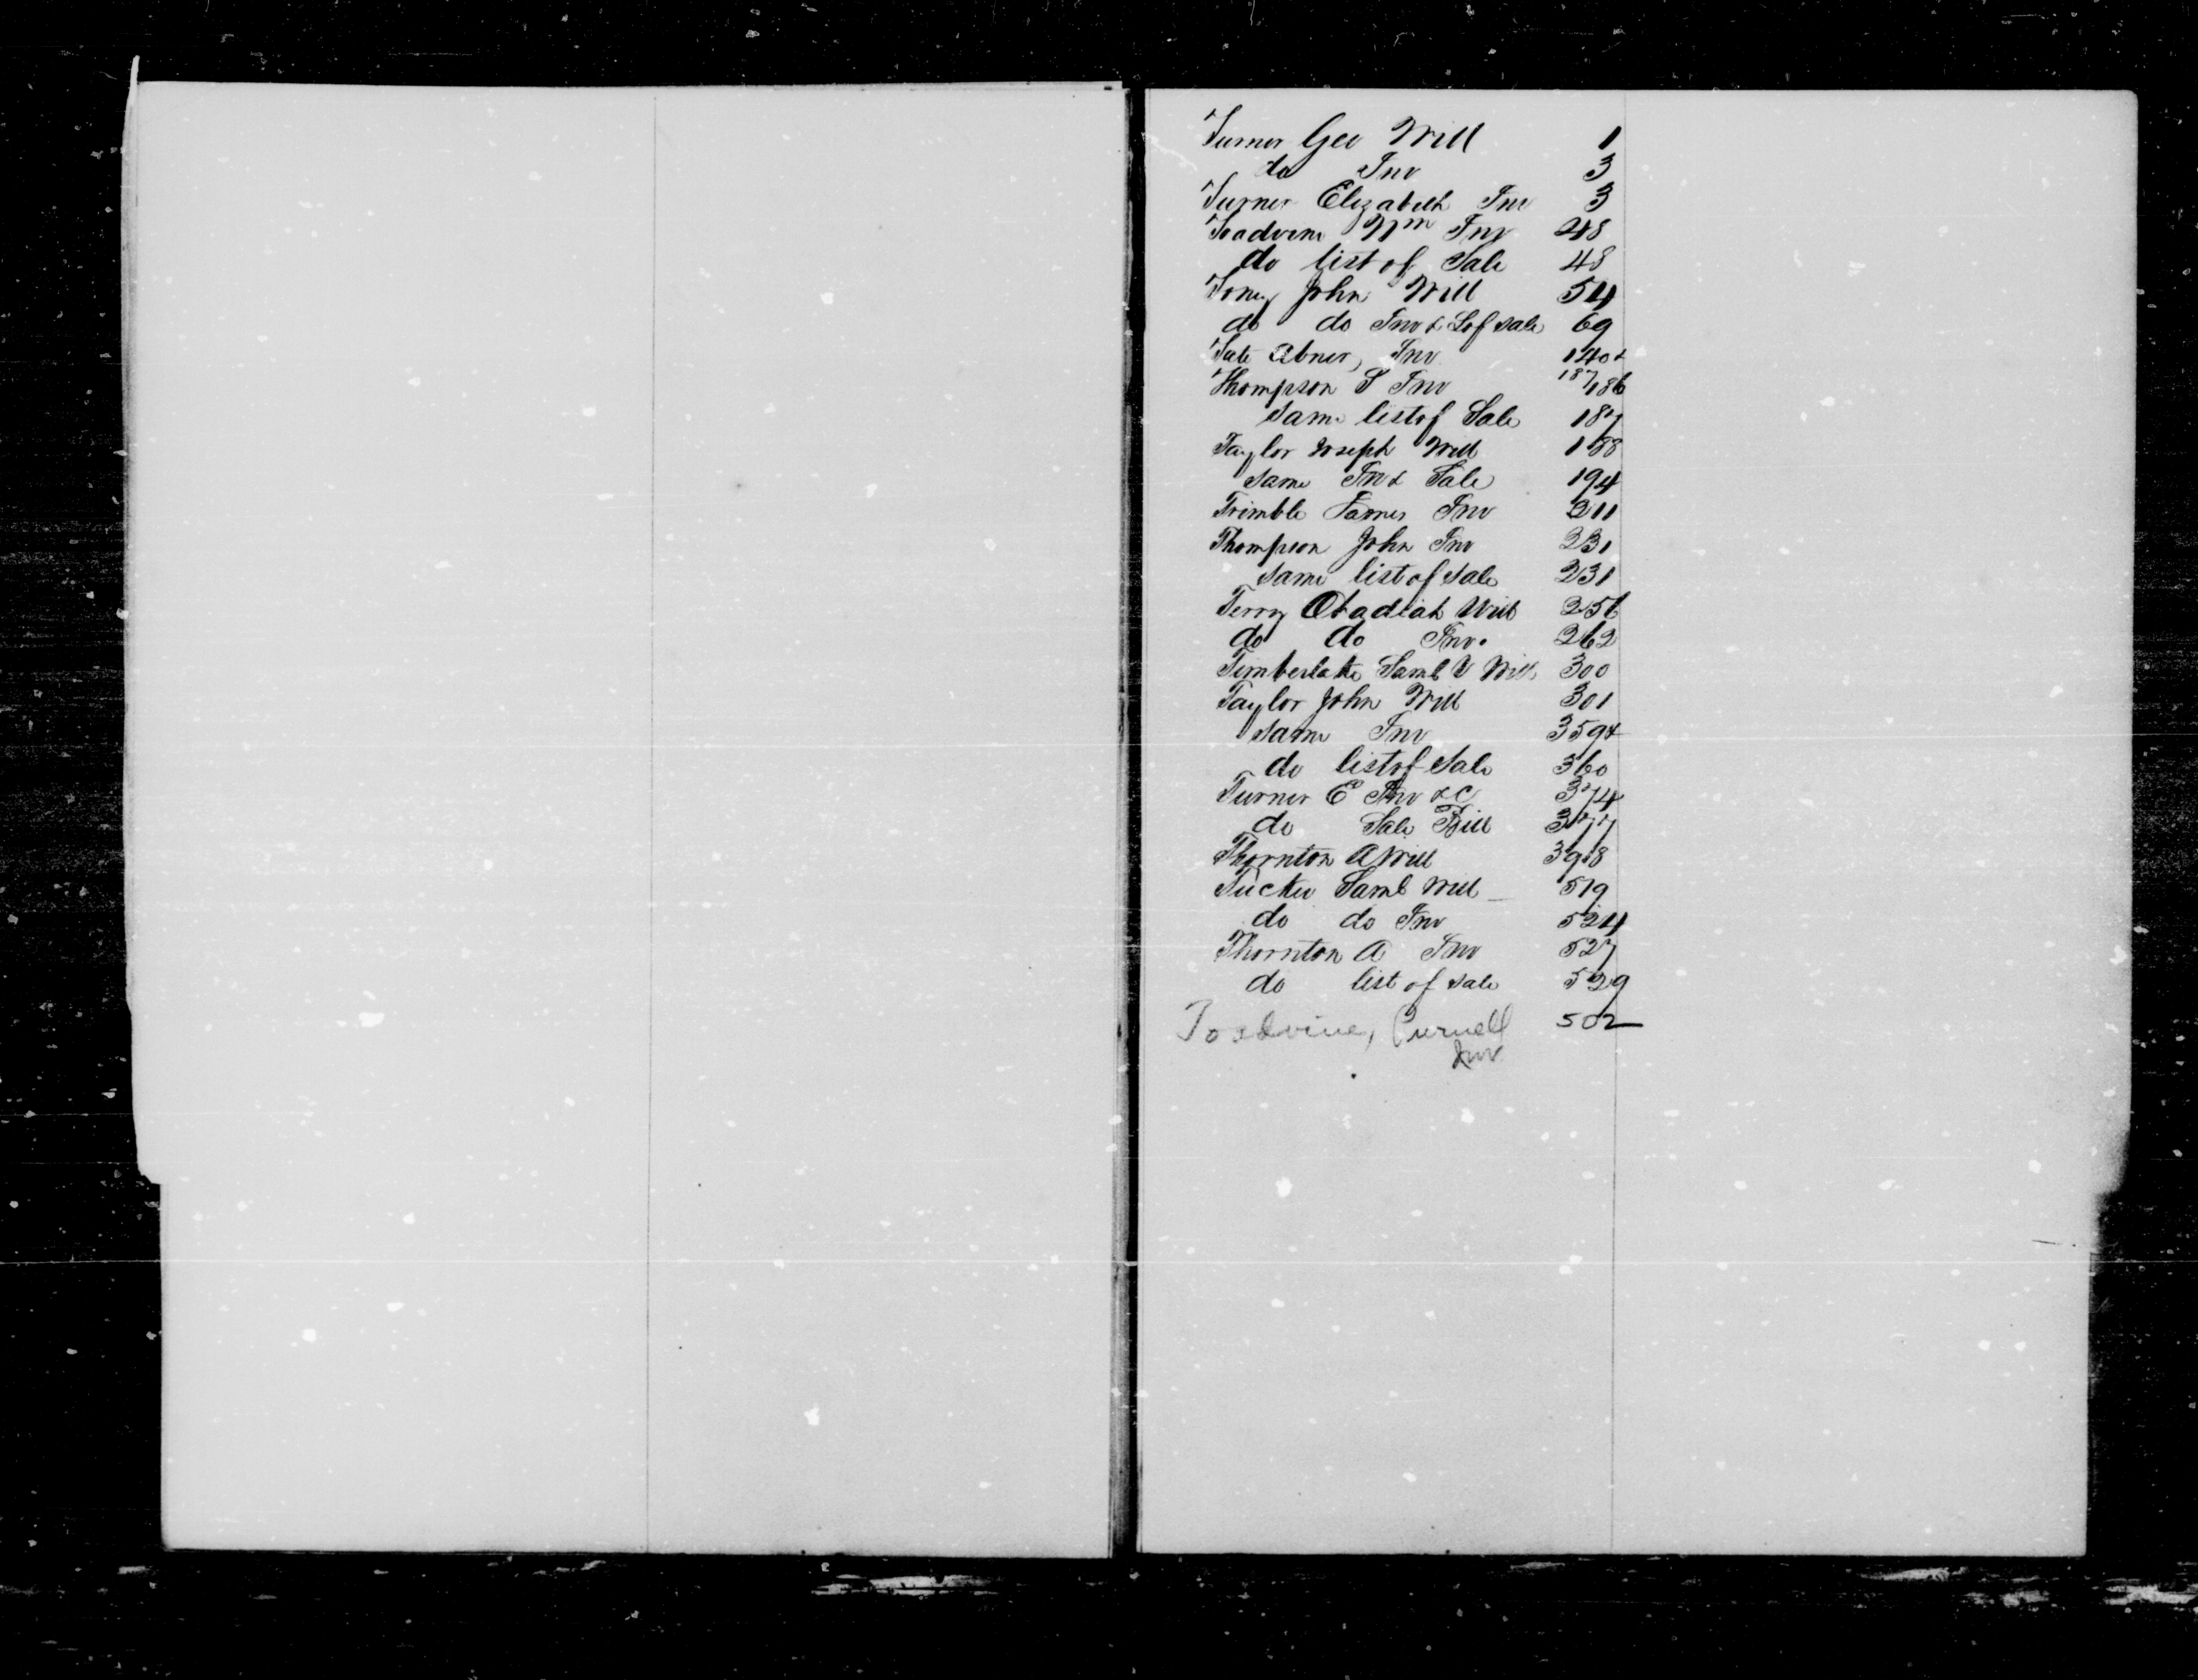 Turner Geo Will 1
do Inv 3
Turner Elizabeth Inv 3
Toadvine Wm Inv 48
do list of Sale 48
Toney John Will 54
do do Inv & L of Sale 69
Tate Abner, Inv 140 &
Thompson S Inv 187/186
Same list of Sale 187
Taylor Joseph Will 188
Same Inv & Sale 194
Trimble James Inv 211
Thompson John Inv 231
Same list of Sale 231
Terry Obadiah Will 256
do do Inv. 262
Timberlake Saml V Will 300
Taylor John Will 301
Same Inv 359 &
do list of Sale 360
Turner E Inv &C 374
do Sale Bill 377
Thornton A Will 398
Tucker Saml Will 519
do do Inv 524
Thornton A Inv 527
do list of Sale 529
Toadvine, Purnell 502
Inv